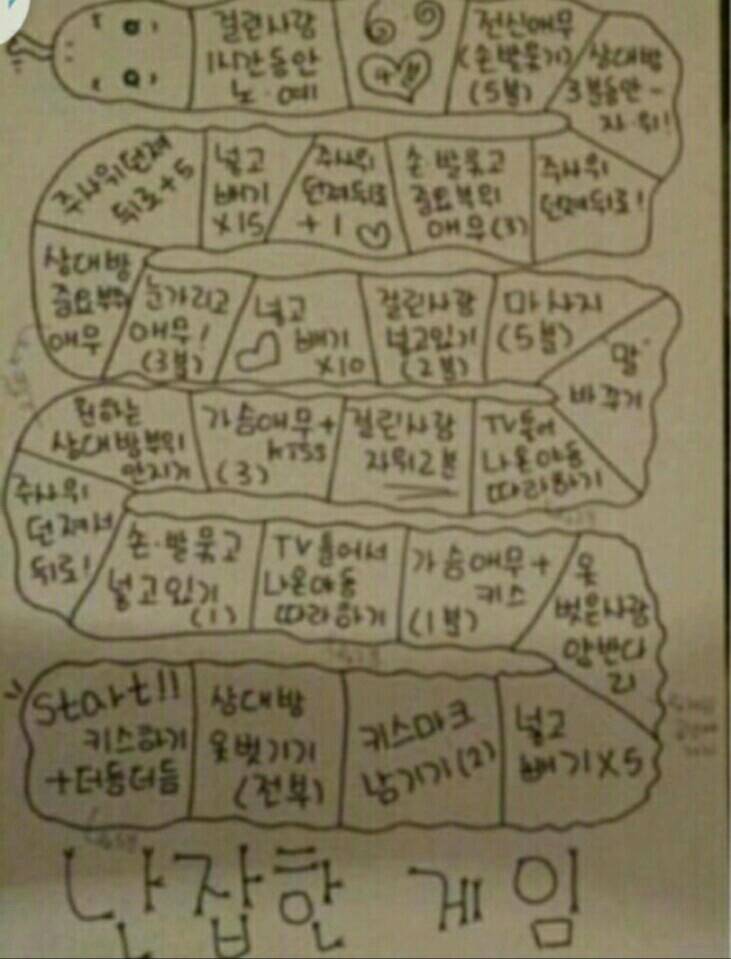 걸린사람
1시간동안
노·예
69
전신애무
(손발묶기)
(5분)
상대방
3분동안-
자·위!
주사위던져
뒤로+5
넣고
빼기
X15
주사위
던져뒤로
+1
손·발묶고
중요부위
애무(3)
주사위
던져뒤로!
상대방
중요부위
애무
눈가리고
애무!
(3분)
넣고
빼기
X10
걸린사람
넣고있기
(2분)
마사지
(5분)
"말"
바꾸기
원하는
상대방부위
만지기
가슴애무+
kiss
(3)
걸린사람
자위2분
TV틀어
나온야동
따라하기
주사위
던져서
뒤로!
손·발묶고
넣고있기
(1)
TV틀어서
나온야동
따라하기
가슴애무+
키스
(1분)
옷
벗은사람
Start!!
키스하기
+더듬더듬
상대방
옷벗기기
(전부)
키스마크
남기기(2)
넣고
빼기X5
난잡한 게임